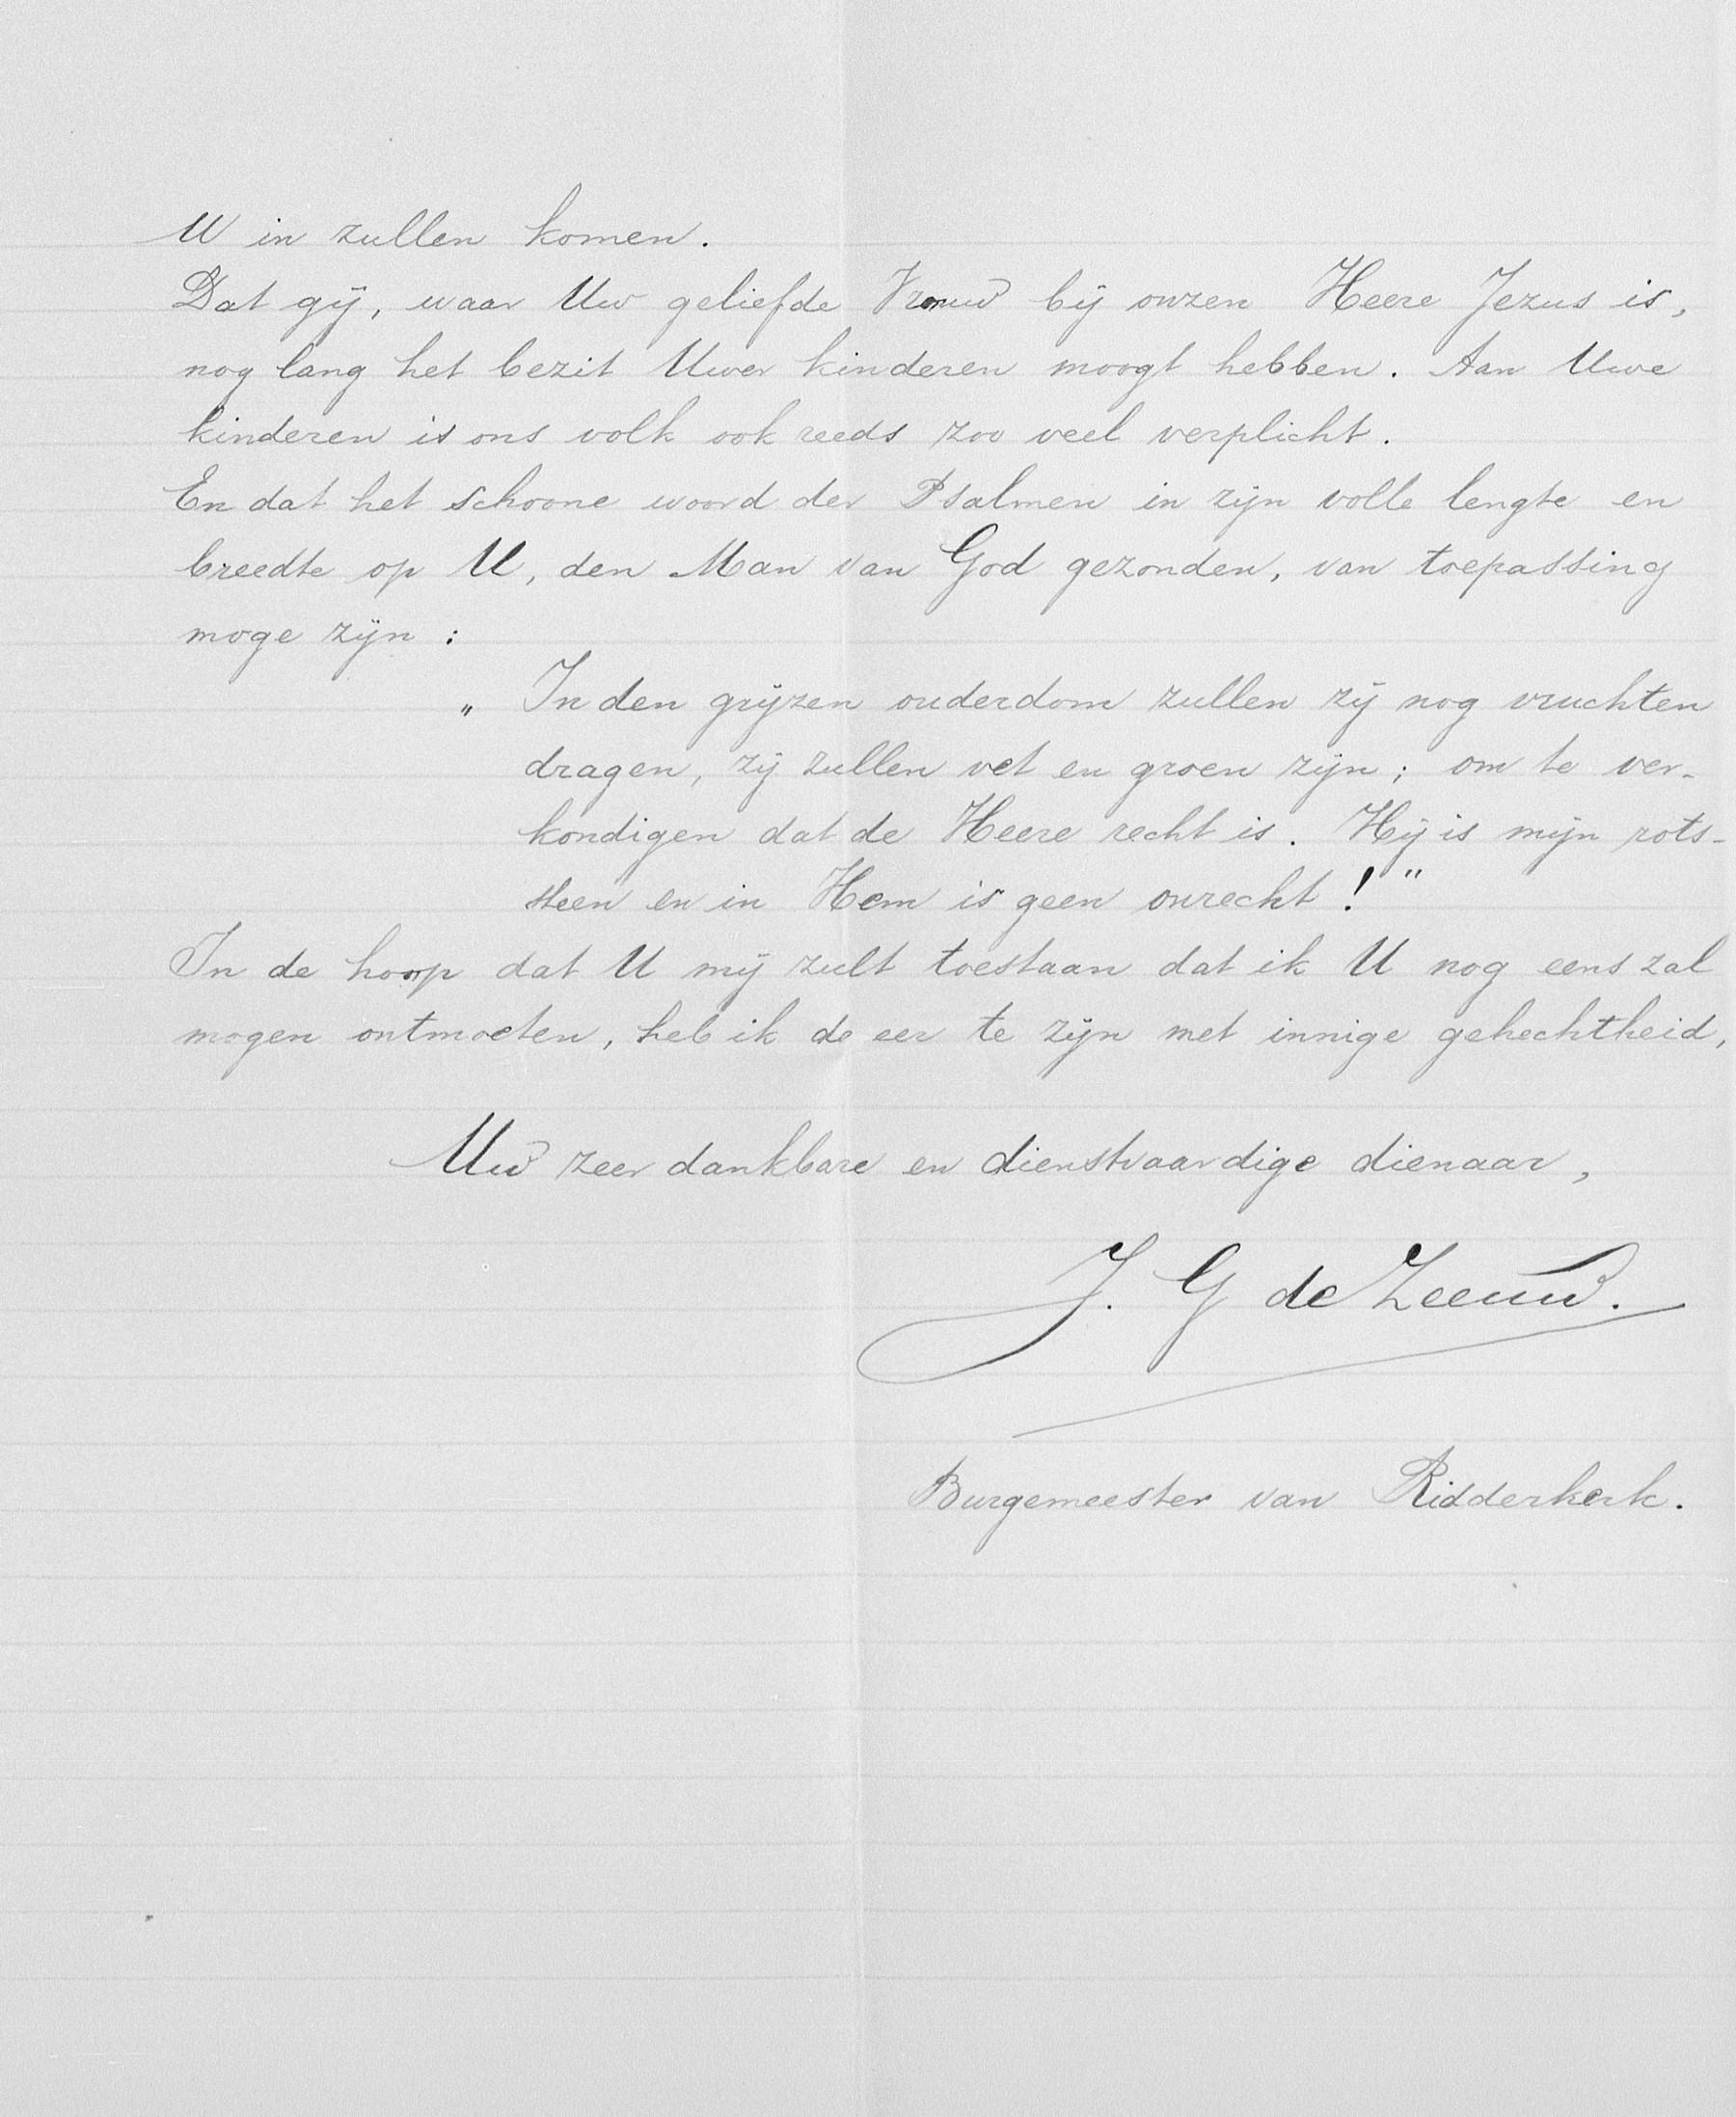 U in zullen komen.
Dat gij, waar Uw geliefde Vrouw bij onzen Heere Jezus is,
nog lang het bezit Uwer kinderen moogt hebben. Aan Uwe
kinderen is ons volk ook reeds zoo veel verplicht.
En dat het schoone woord der Psalmen in zijn volle lengte en
breedte op U, den Man van God gezonden, van toepassing
moge zijn:
„In den grijzen ouderdom zullen zij nog vruchten
dragen, zij zullen vet en groen zijn; om te ver-
kondigen dat de Heere recht is. Hij is mijn rots-
steen en in Hem is geen onrecht!"
In de hoop dat U mij zult toestaan dat ik U nog eens zal
mogen ontmoeten, heb ik de eer te zijn met innige gehechtheid,
Uw zeer dankbare en dienstvaardige dienaar,
J. G de Zeeuw.
Burgemeester van Ridderkerk.